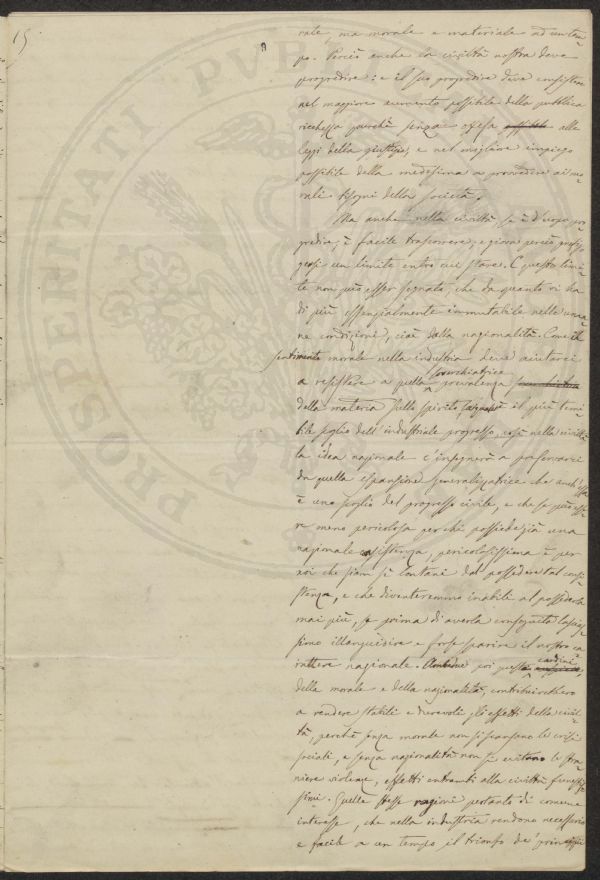 15
rale, ma morale e materiale ad un tem-
po. Perciò anche la civiltà nostra deve
progredire: e il suo progredire deve consistere
nel maggiore aumento possibile della pubblica
ricchezza purchè senza offesa possibile alle
leggi della giustizia, e nel migliore impiego
possibile della medesima a provvedere ai mo-
rali bisogni della società.
Ma anche nella civiltà se è d'uopo pro-
gredire, è facile trascorrere, e giova perciò prefig-
gersi un limite entro cui stare. E questo limi-
te non può esser segnato, che da quanto vi ha
di più essenzialmente immutabile nelle uma-
ne condizioni, cioè dalla nazionalità. Come il
sentimento morale nella industria deve aiutarci
a resistere a quella soverchiatrice prevalenza
della materia sullo spirito, è il più terri-
bile scoglio dell'industriale progresso, così nella civiltà
la idea nazionale c'insegnerà a preservarci
da quella espansione generalizzatrice che anch'essa
è uno scoglio del progresso civile, e che se può esse-
re meno pericolosa per chi possiede già una
nazionale esistenza, pericolosissima è per
noi che siam sì lontani dal possedere tal consi-
stenza, e che diventeremmo inabili al possederla
mai più, se prima di averla conseguita lascias-
simo illanguidire e forse sparire il nostro ca-
rattere nazionale. Ambedue poi questi cardini
della morale e della nazionalità, contribuirebbero
a rendere stabili e durevoli gli effetti della civil-
tà, perchè senza morale non si scansano le crisi
sociali, e senza nazionalità non si evitano le stra-
niere violenze, effetti entrambi alla civiltà funestis-
simi. Quelle stesse ragioni pertanto di comune
interesse, che nella industria rendono necessario
e facile a un tempo il trionfo de' principii
PROSPERITATI PVBL